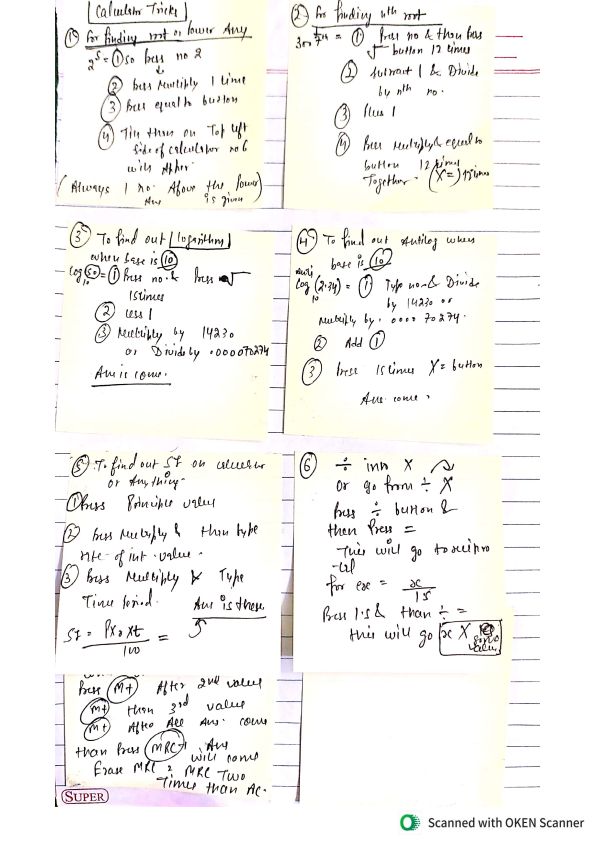 Calculator Tricks
① For finding root or lower Any
2⁵ = ① So press no 2
② press Multiply 1 time
③ Press equal to button
④ Tin then on Top left
side of calculator no 6
will Apper.
(Always 1 no. Above the power)
Ans is given
② For finding nth root
= ① Press no & then press
√ button 12 times
② subtract 1 & Divide
by nth no.
③ Plus 1
④ Press Multiply & equal to
button 12 times
Together. (X=) 12 times
③ To find out logarithm
when base is 10
log₁₀(50) = ① Press no. & Press √
15 times
② Less 1
③ Multiply by 14230
or Divide by .000070274
Ans is come.
④ To find out Antilog when
base is 10
Anti
log₁₀ (2.34) = ① Type no & Divide
by 14230 or
Multiply by .000070274.
② Add ①
③ Press 15 times X= button
Ans. come.
⑤ To find out SI on calculator
or Anything.
① Press Principle value
② Press Multiply & than type
rate of int. value.
③ Press Multiply & Type
Time period. Ans is there
SI = PXrXt / 100 =
⑥ ÷ into X
Or go from ÷ X
Press ÷ button &
then Press =
This will go to recipro
-cal
for exe = x / 15
Press 15 & than ÷ =
this will go x X
value
Press M+ After 2nd value
M+ then 3rd value
M+ After All Ans. come
than Press MRC Ans
will come
Erase MRC 2 MRC Two
Times than AC.
SUPER
Scanned with OKEN Scanner